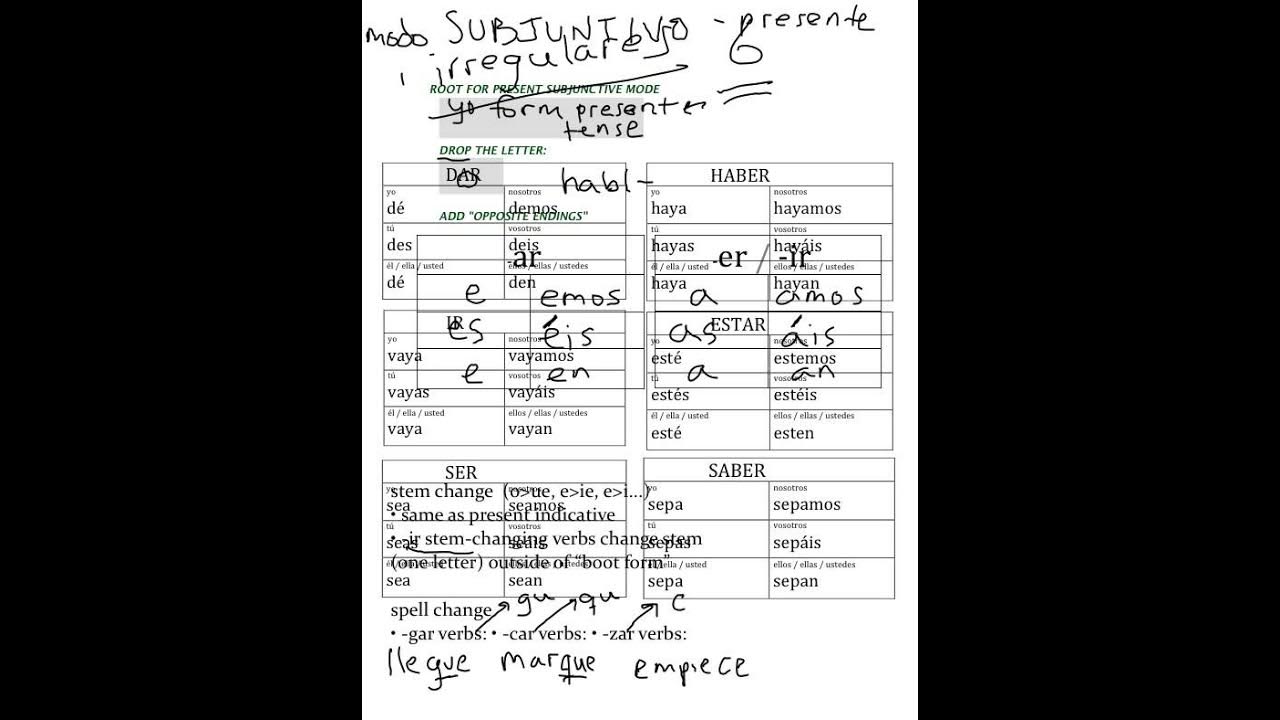 modo SUBJUNTIVO - presente
irregulares 6
ROOT FOR PRESENT SUBJUNCTIVE MODE
yo form present
tense
DROP THE LETTER:
DAR
o
habl-
HABER
yo nosotros yo nosotros
dé demos haya hayamos
ADD "OPPOSITE ENDINGS"
tú vosotros tú vosotros
des deis hayas hayáis
-ar -er / -ir
él / ella / usted ellos / ellas / ustedes él / ella / usted ellos / ellas / ustedes
dé den haya hayan
e emos a amos
IR ESTAR
es éis as áis
yo nosotros yo nosotros
vaya vayamos esté estemos
e en a an
tú vosotros tú vosotros
vayas vayáis estés estéis
él / ella / usted ellos / ellas / ustedes él / ella / usted ellos / ellas / ustedes
vaya vayan esté esten
SER SABER
yo nosotros yo nosotros
stem change (o>ue, e>ie, e>i...)
sea seamos sepa sepamos
• same as present indicative
tú vosotros tú vosotros
seas seáis sepáis
• -ir stem-changing verbs change stem
(one letter) outside of "boot form"
ellos / ellas / ustedes
sea sean sepa sepan
spell change gu qu c
• -gar verbs: • -car verbs: • -zar verbs:
llegue marque empiece